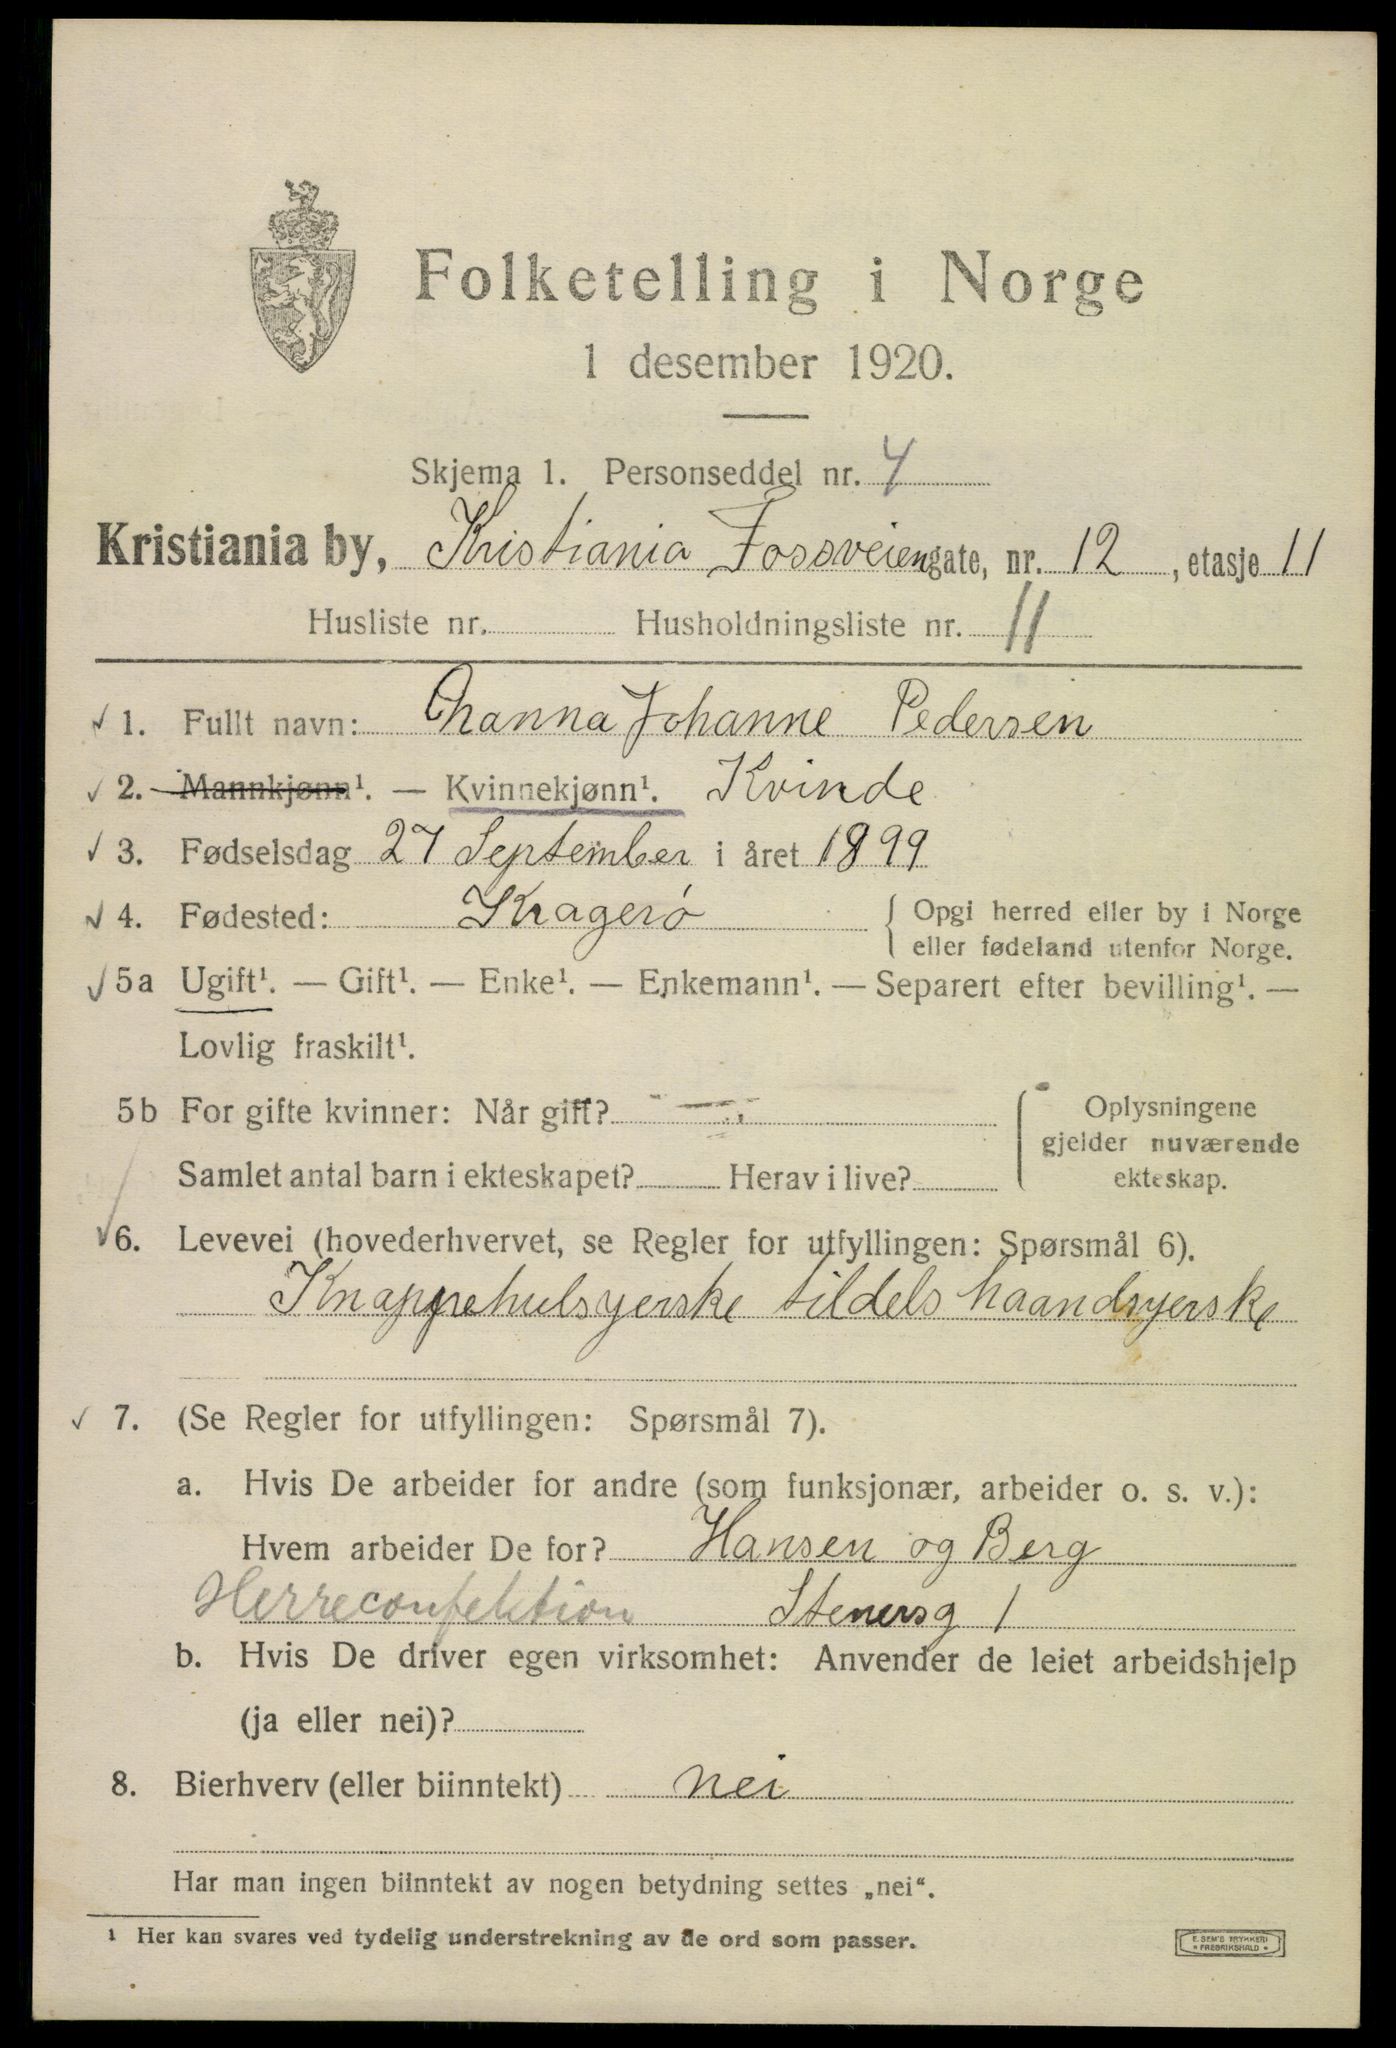 Folketelling i Norge
1 desember 1920.
Skjema 1. Personseddel nr. 4
Kristiania by, Kristiania Fossveiengate, nr. 12, etasje 11
Husliste nr. Husholdningsliste nr. 11
✓ 1. Fullt navn: Johanne Pedersen
✓ 2. Mannkjønn¹. — Kvinnekjønn¹. Kvinde
✓ 3. Fødselsdag 27 September i året 1899
✓ 4. Fødested: Kragerö { Opgi herred eller by i Norge
eller fødeland utenfor Norge.
✓ 5a Ugift¹. — Gift¹. — Enke¹. — Enkemann¹. — Separert efter bevilling¹. —
Lovlig fraskilt¹.
5b For gifte kvinner: Når gift? { Oplysningene
gjelder nuværende
Samlet antal barn i ekteskapet? Herav i live? ekteskap.
✓ 6. Levevei (hovederhvervet, se Regler for utfyllingen: Spørsmål 6).
Knappehulsyerske tildels haandsyerske
✓ 7. (Se Regler for utfyllingen: Spørsmål 7).
a. Hvis De arbeider for andre (som funksjonær, arbeider o. s. v.):
Hvem arbeider De for? Hansen og Berg
Herreconfektion Stenersg 1
b. Hvis De driver egen virksomhet: Anvender de leiet arbeidshjelp
(ja eller nei)?
8. Bierhverv (eller biinntekt) nei
Har man ingen biinntekt av nogen betydning settes „nei“.
¹ Her kan svares ved tydelig understrekning av de ord som passer.
E. SEM'S TRYKKERI
* FREDRIKSHALD *